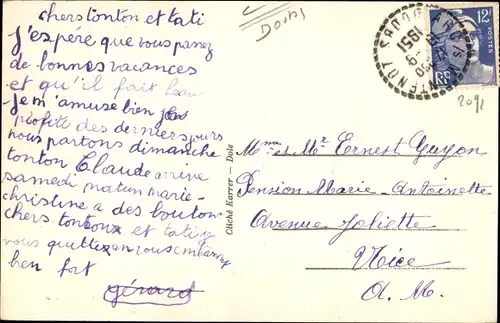 chers tonton et tati
j'espère que vous passez
de bonnes vacances
et qu'il fait beau
je m'amuse bien
profite des derniers jours
nous partons dimanche
tonton Claude arrive
samedi matin marie-
christine a des bouton
chers tontons et tatie
vous quittez en vous embrassant
ben fort
gérard
Dorns
12F
POSTES
RF
1951
2091
Cliché Karrer — Dole
Mme et Mr Ernest Guyon
Pension Marie-Antoinette
Avenue Joliette
Nice
A. M.